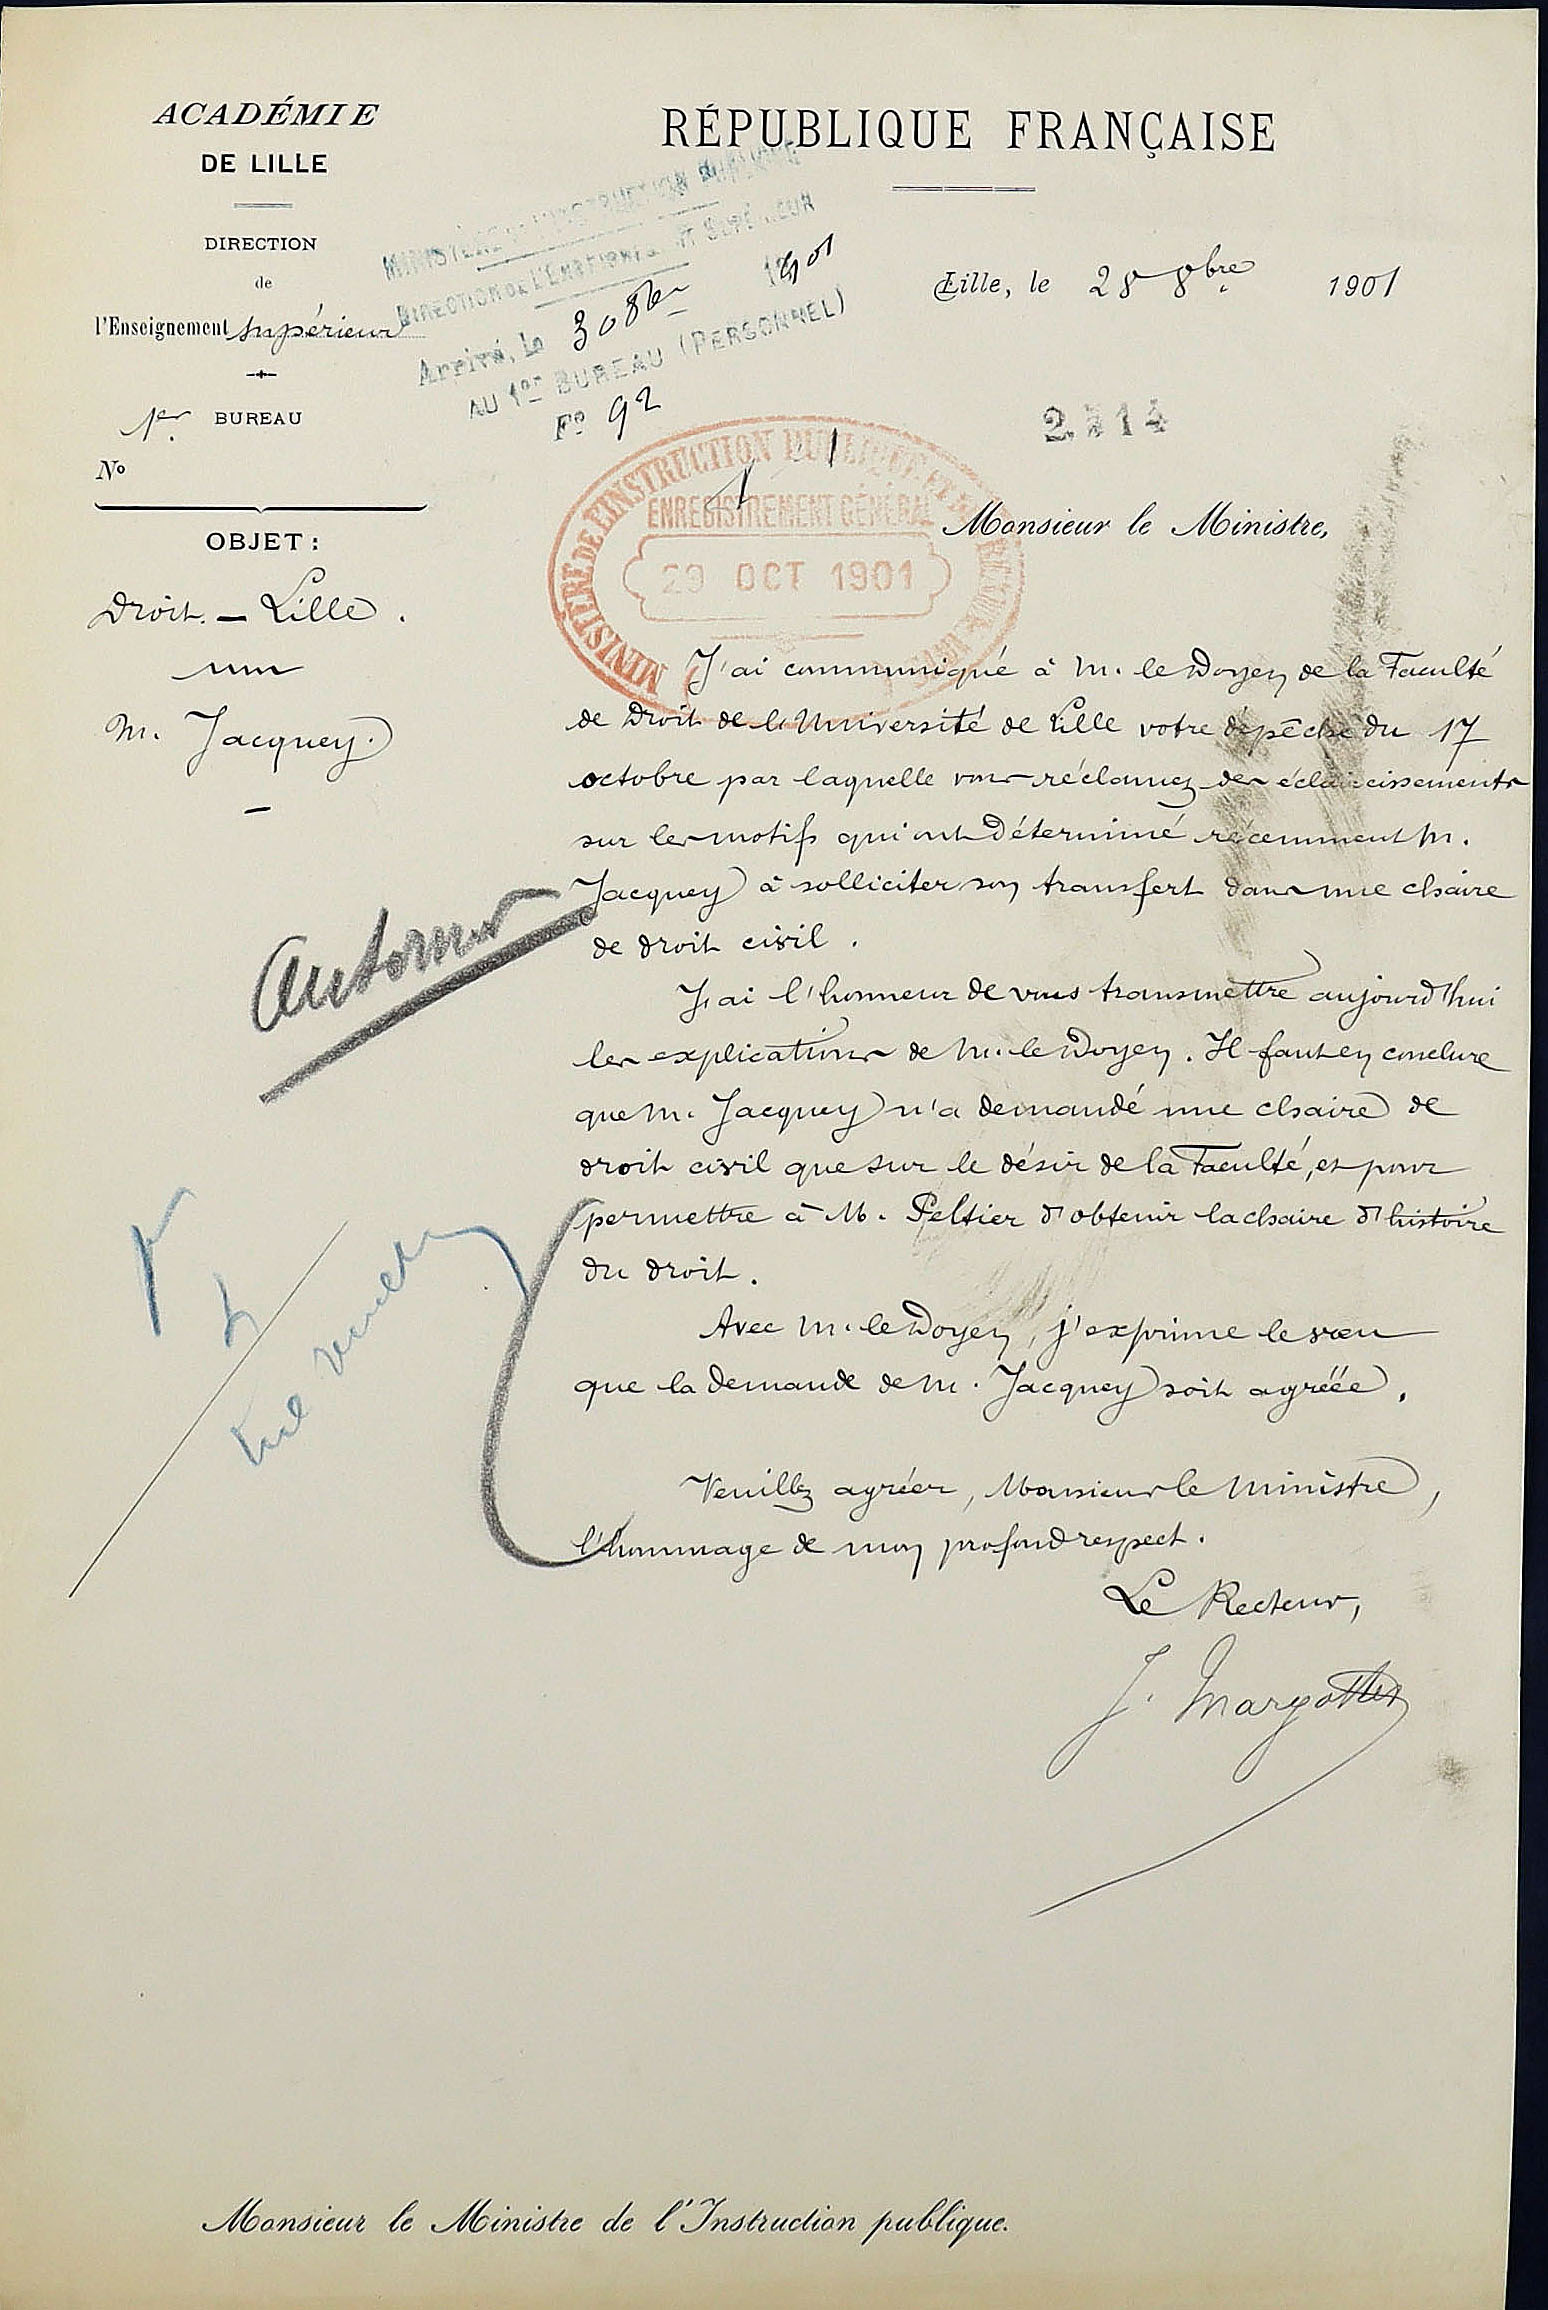 ACADÉMIE
DE LILLE
DIRECTION
de
l'Enseignement supérieur
1er BUREAU
No
OBJET :
Droit. — Lille.
M. Jacquey.
RÉPUBLIQUE FRANÇAISE
MINISTÈRE DE L'INSTRUCTION PUBLIQUE
DIRECTION DE L'ENSEIGNEMENT SUPÉRIEUR
Arrivé, le 30 8bre 1901
AU 1er BUREAU (PERSONNEL)
Fo 92
Lille, le 28 8bre 1901
MINISTÈRE DE L'INSTRUCTION PUBLIQUE ET DES
ENREGISTREMENT GÉNÉRAL
29 OCT 1901
Monsieur le Ministre,
J'ai communiqué à M. le Doyen de la Faculté
de Droit de l'Université de Lille votre dépêche du 17
octobre par laquelle vous réclamez des éclaircissements
sur les motifs qui ont déterminé récemment M.
Jacquey à solliciter son transfert dans une chaire
de droit civil.
J'ai l'honneur de vous transmettre aujourd'hui
les explications de M. le Doyen. Il faut en conclure
que M. Jacquey n'a demandé une chaire de
droit civil que sur le désir de la Faculté, et pour
permettre à M. Peltier d'obtenir la chaire d'histoire
du droit.
Avec M. le Doyen, j'exprime le vœu
que la demande de M. Jacquey soit agréée.
Veuillez agréer, Monsieur le Ministre,
l'hommage de mon profond respect.
Le Recteur,
J. Margottin
Monsieur le Ministre de l'Instruction publique.